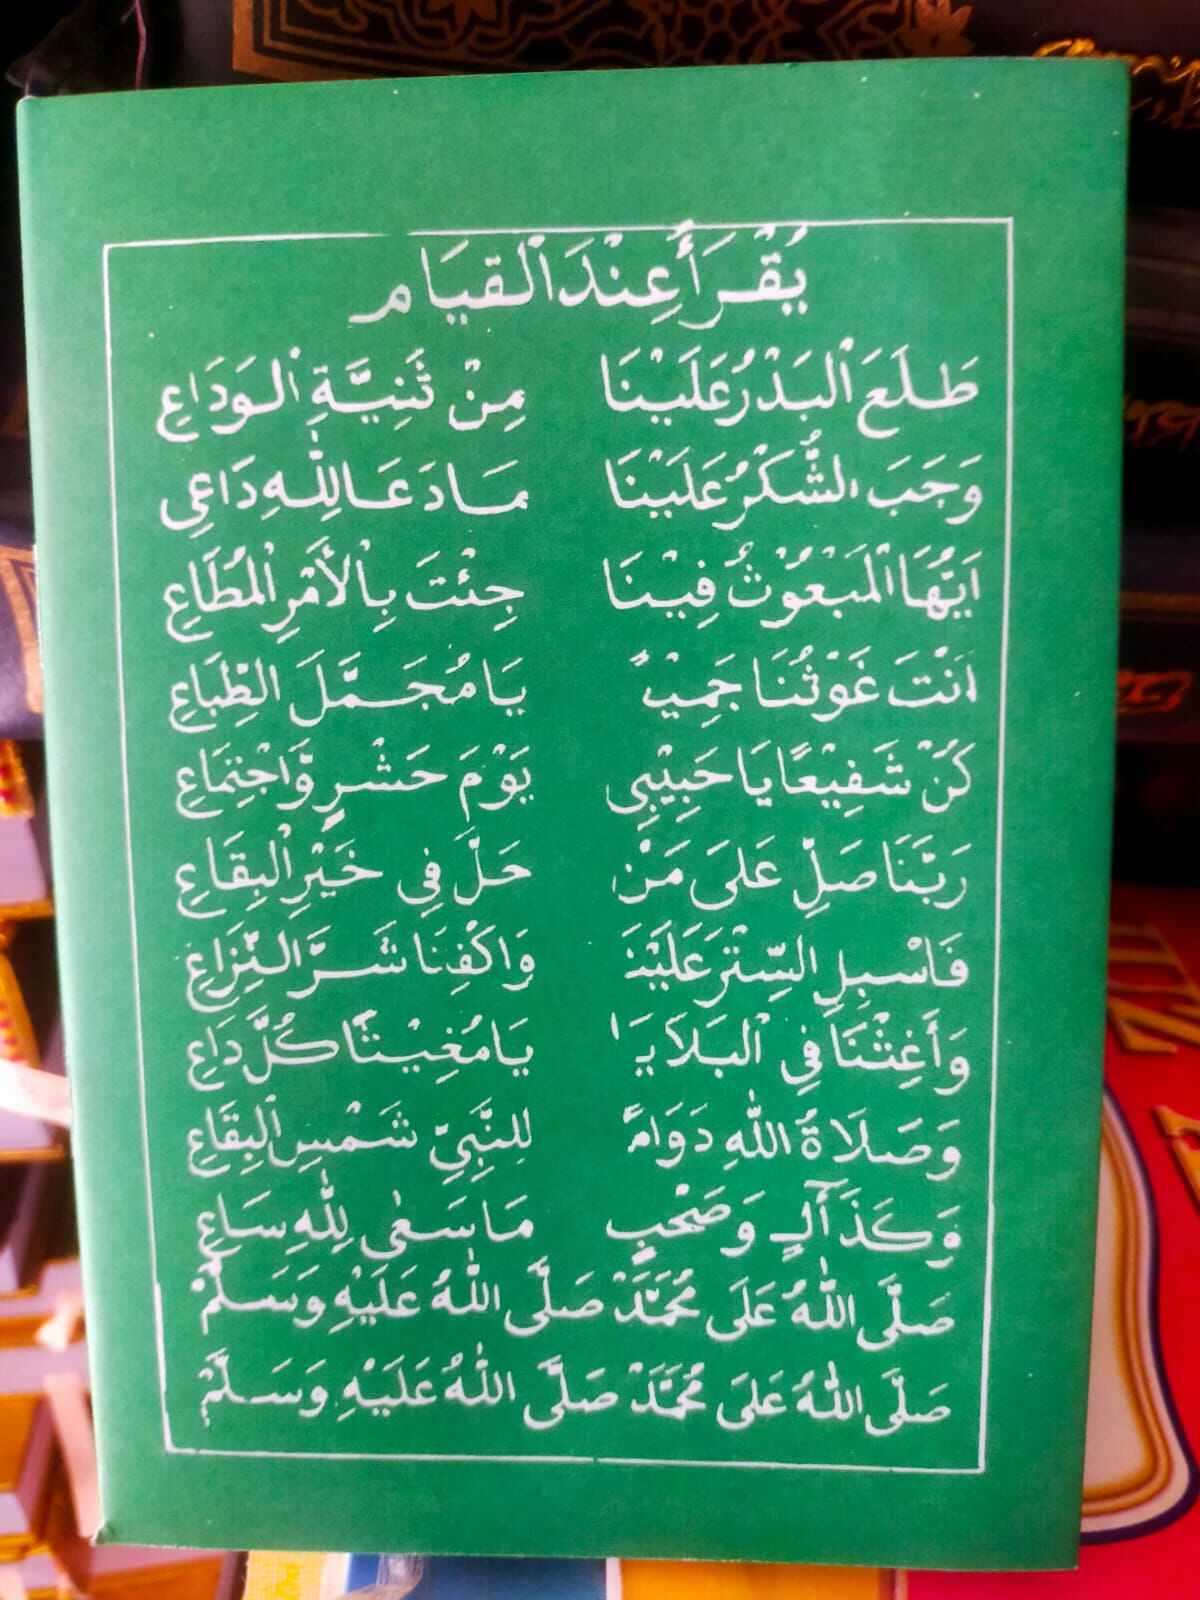 يُقْرَأُ عِنْدَ الْقِيَامِ
طَلَعَ الْبَدْرُ عَلَيْنَا مِنْ ثَنِيَّةِ الْوَدَاعِ
وَجَبَ الشُّكْرُ عَلَيْنَا مَا دَعَا لِلّٰهِ دَاعِى
اَيُّهَا الْمَبْعُوْثُ فِيْنَا جِئْتَ بِالْأَمْرِ الْمُطَاعِ
اَنْتَ غَوْثُنَا جَمِيْ يَا مُجَمَّلَ الطِّبَاعِ
كُنْ شَفِيْعًا يَا حَبِيْبِى يَوْمَ حَشْرٍ وَّاجْتِمَاعِ
رَبَّنَا صَلِّ عَلَى مَنْ حَلَّ فِى خَيْرِ الْبِقَاعِ
فَاسْبِلِ السِّتْرَ عَلَيْنَ وَاكْفِنَا شَرَّ النِّزَاعِ
وَأَغِثْنَا فِى الْبَلَايَا يَا مُغِيْثًا كُلَّ دَاعِ
وَصَلَاةُ اللّٰهِ دَوَامً لِلنَّبِيِّ شَمْسِ الْبِقَاعِ
وَكَذَا آلٍ وَصَحْبٍ مَا سَعٰى لِلّٰهِ سَاعِ
صَلَّى اللّٰهُ عَلَى مُحَمَّدْ صَلَّى اللّٰهُ عَلَيْهِ وَسَلَّمْ
صَلَّى اللّٰهُ عَلَى مُحَمَّدْ صَلَّى اللّٰهُ عَلَيْهِ وَسَلَّمْ